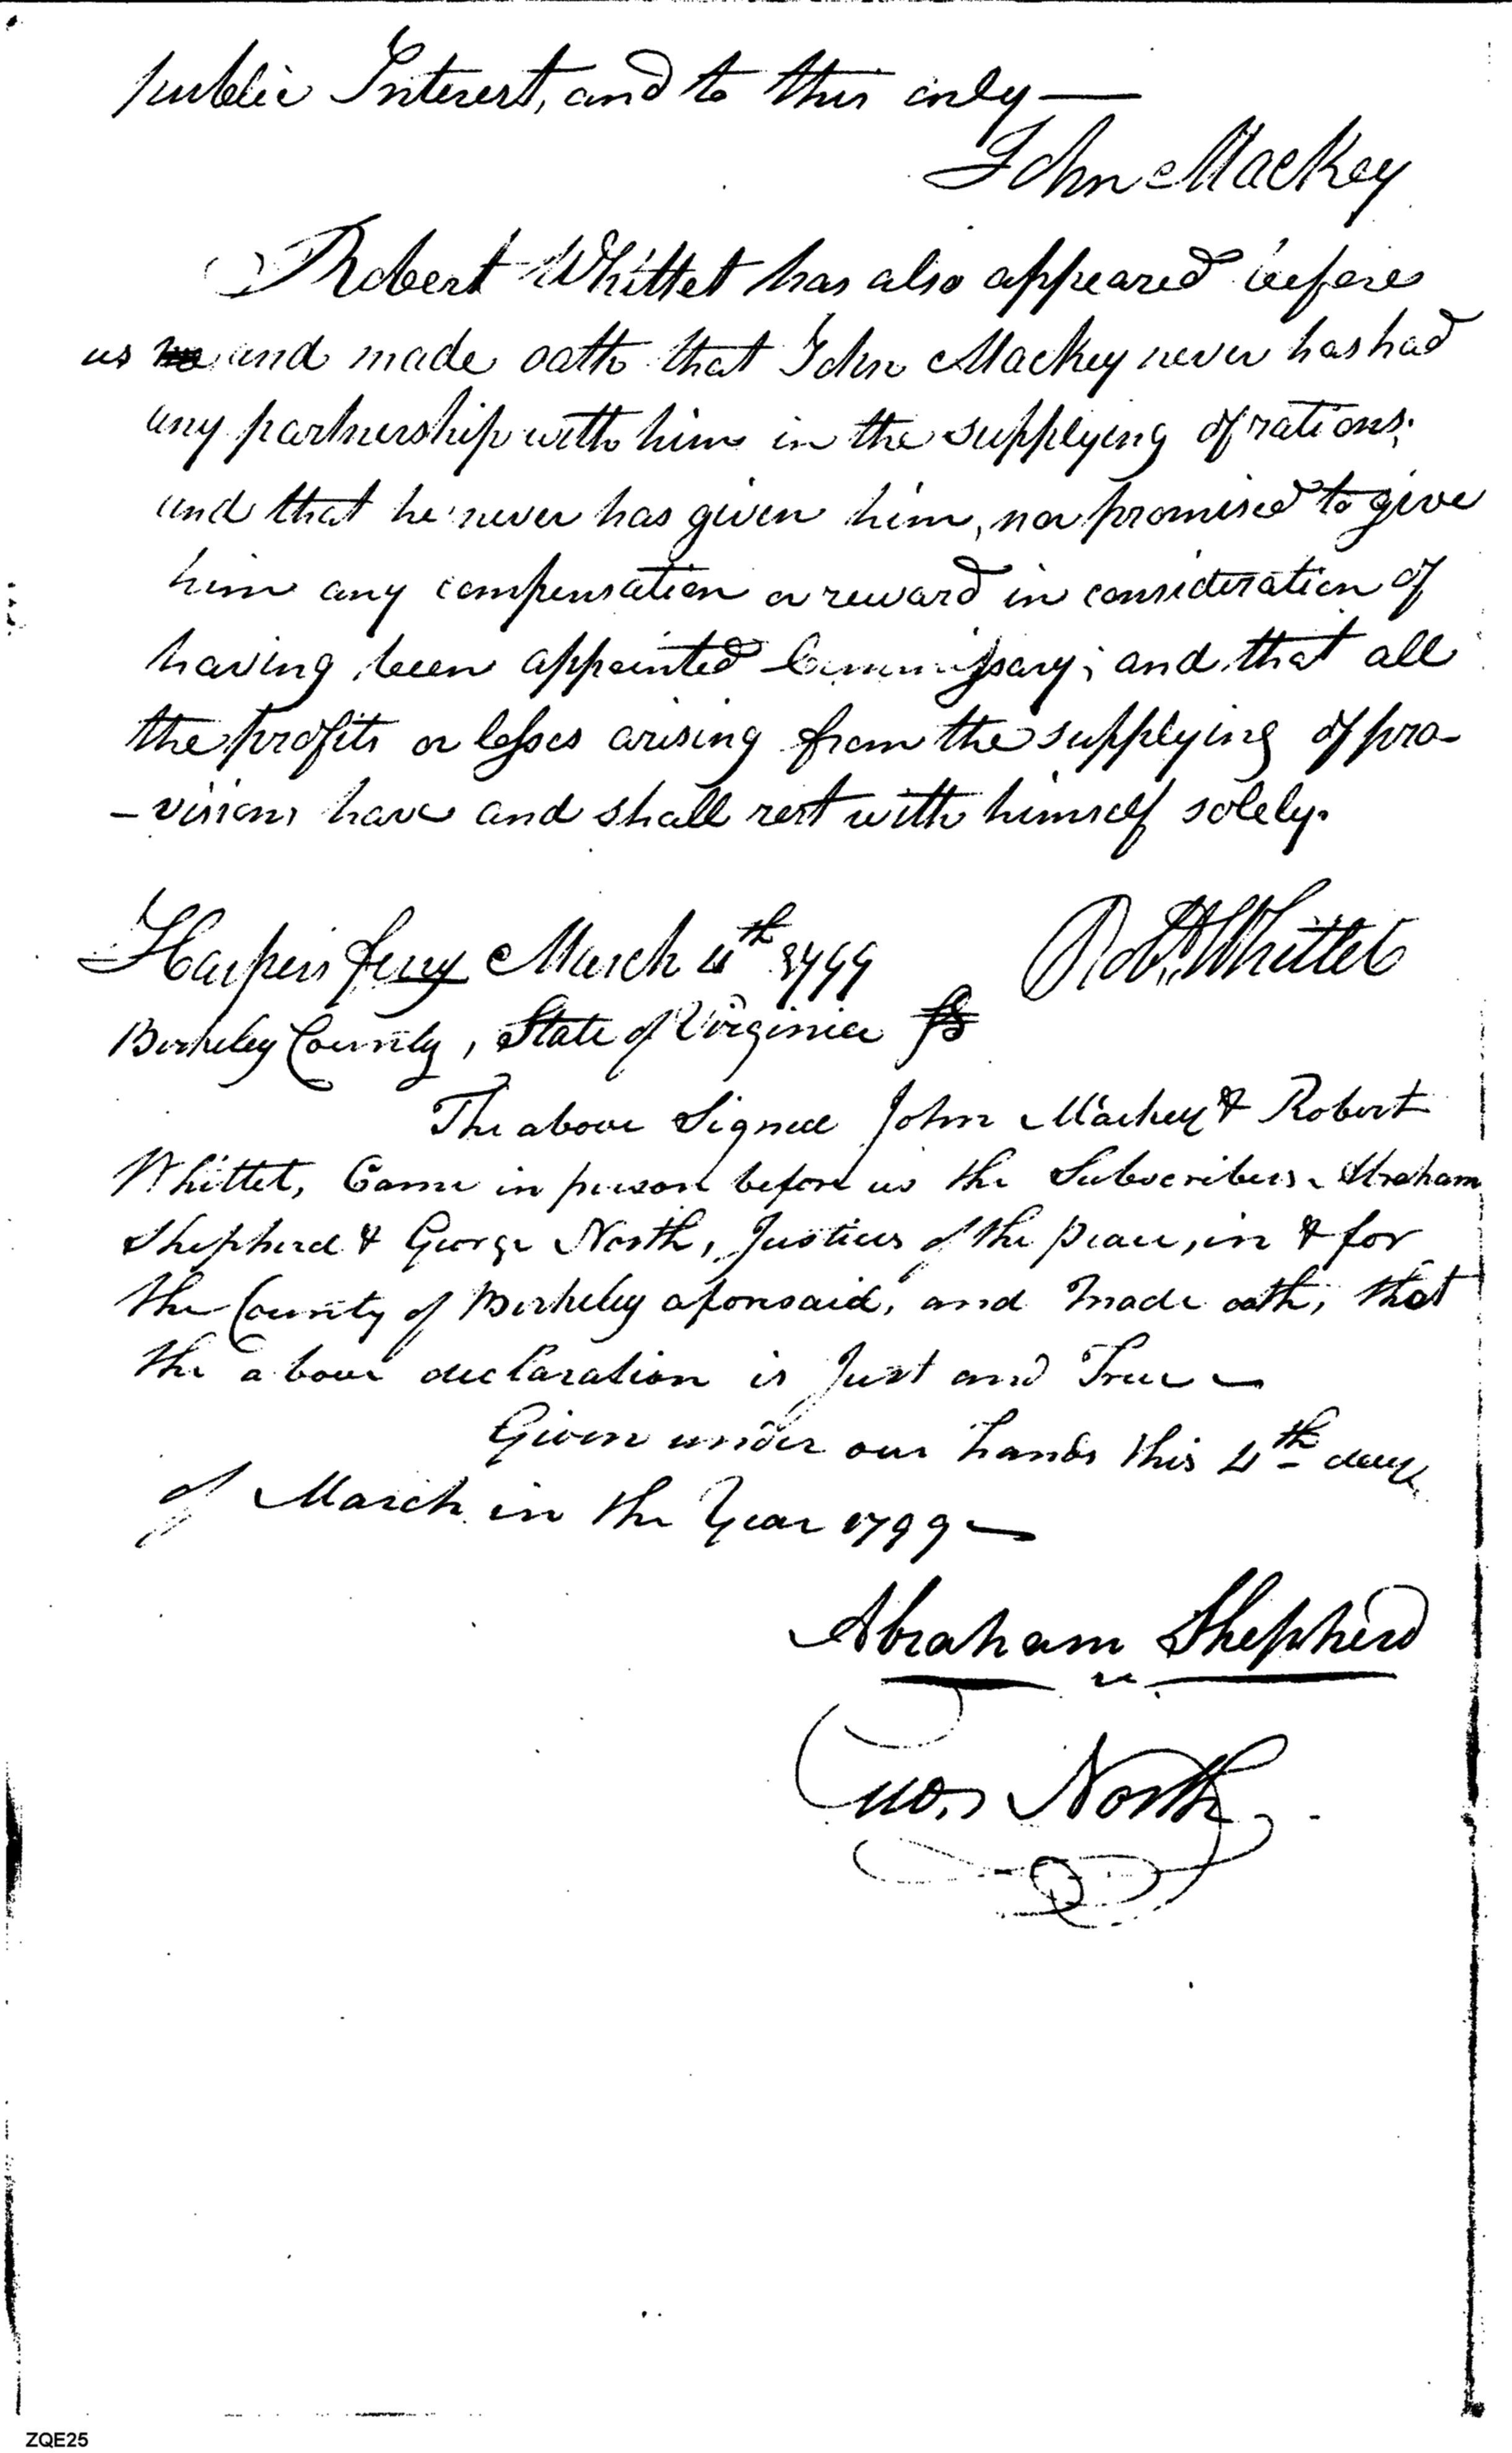 public Interest, and to this only —
John Mackey
Robert Whittet has also appeared before
us and made oath that John Mackey never has had
any partnership with him in the supplying of rations;
and that he never has given him, nor promised to give
him any compensation or reward in consideration of
having been appointed Commissary; and that all
the profits or losses arising from the supplying of pro-
-visions have and shall rest with himself solely.
Harpers ferry March 4th 1799
Robt. Whittet
Berkeley County, State of Virginia ss
The above Signed John Mackey & Robert
Whittet, Came in person before us the Subscribers Abraham
Shepherd & George North, Justices of the peace, in & for
the County of Berkeley aforesaid, and made oath, that
the above declaration is Just and True —
Given under our hands this 4th day
of March in the Year 1799 —
Abraham Shepherd
Geo. North
ZQE25